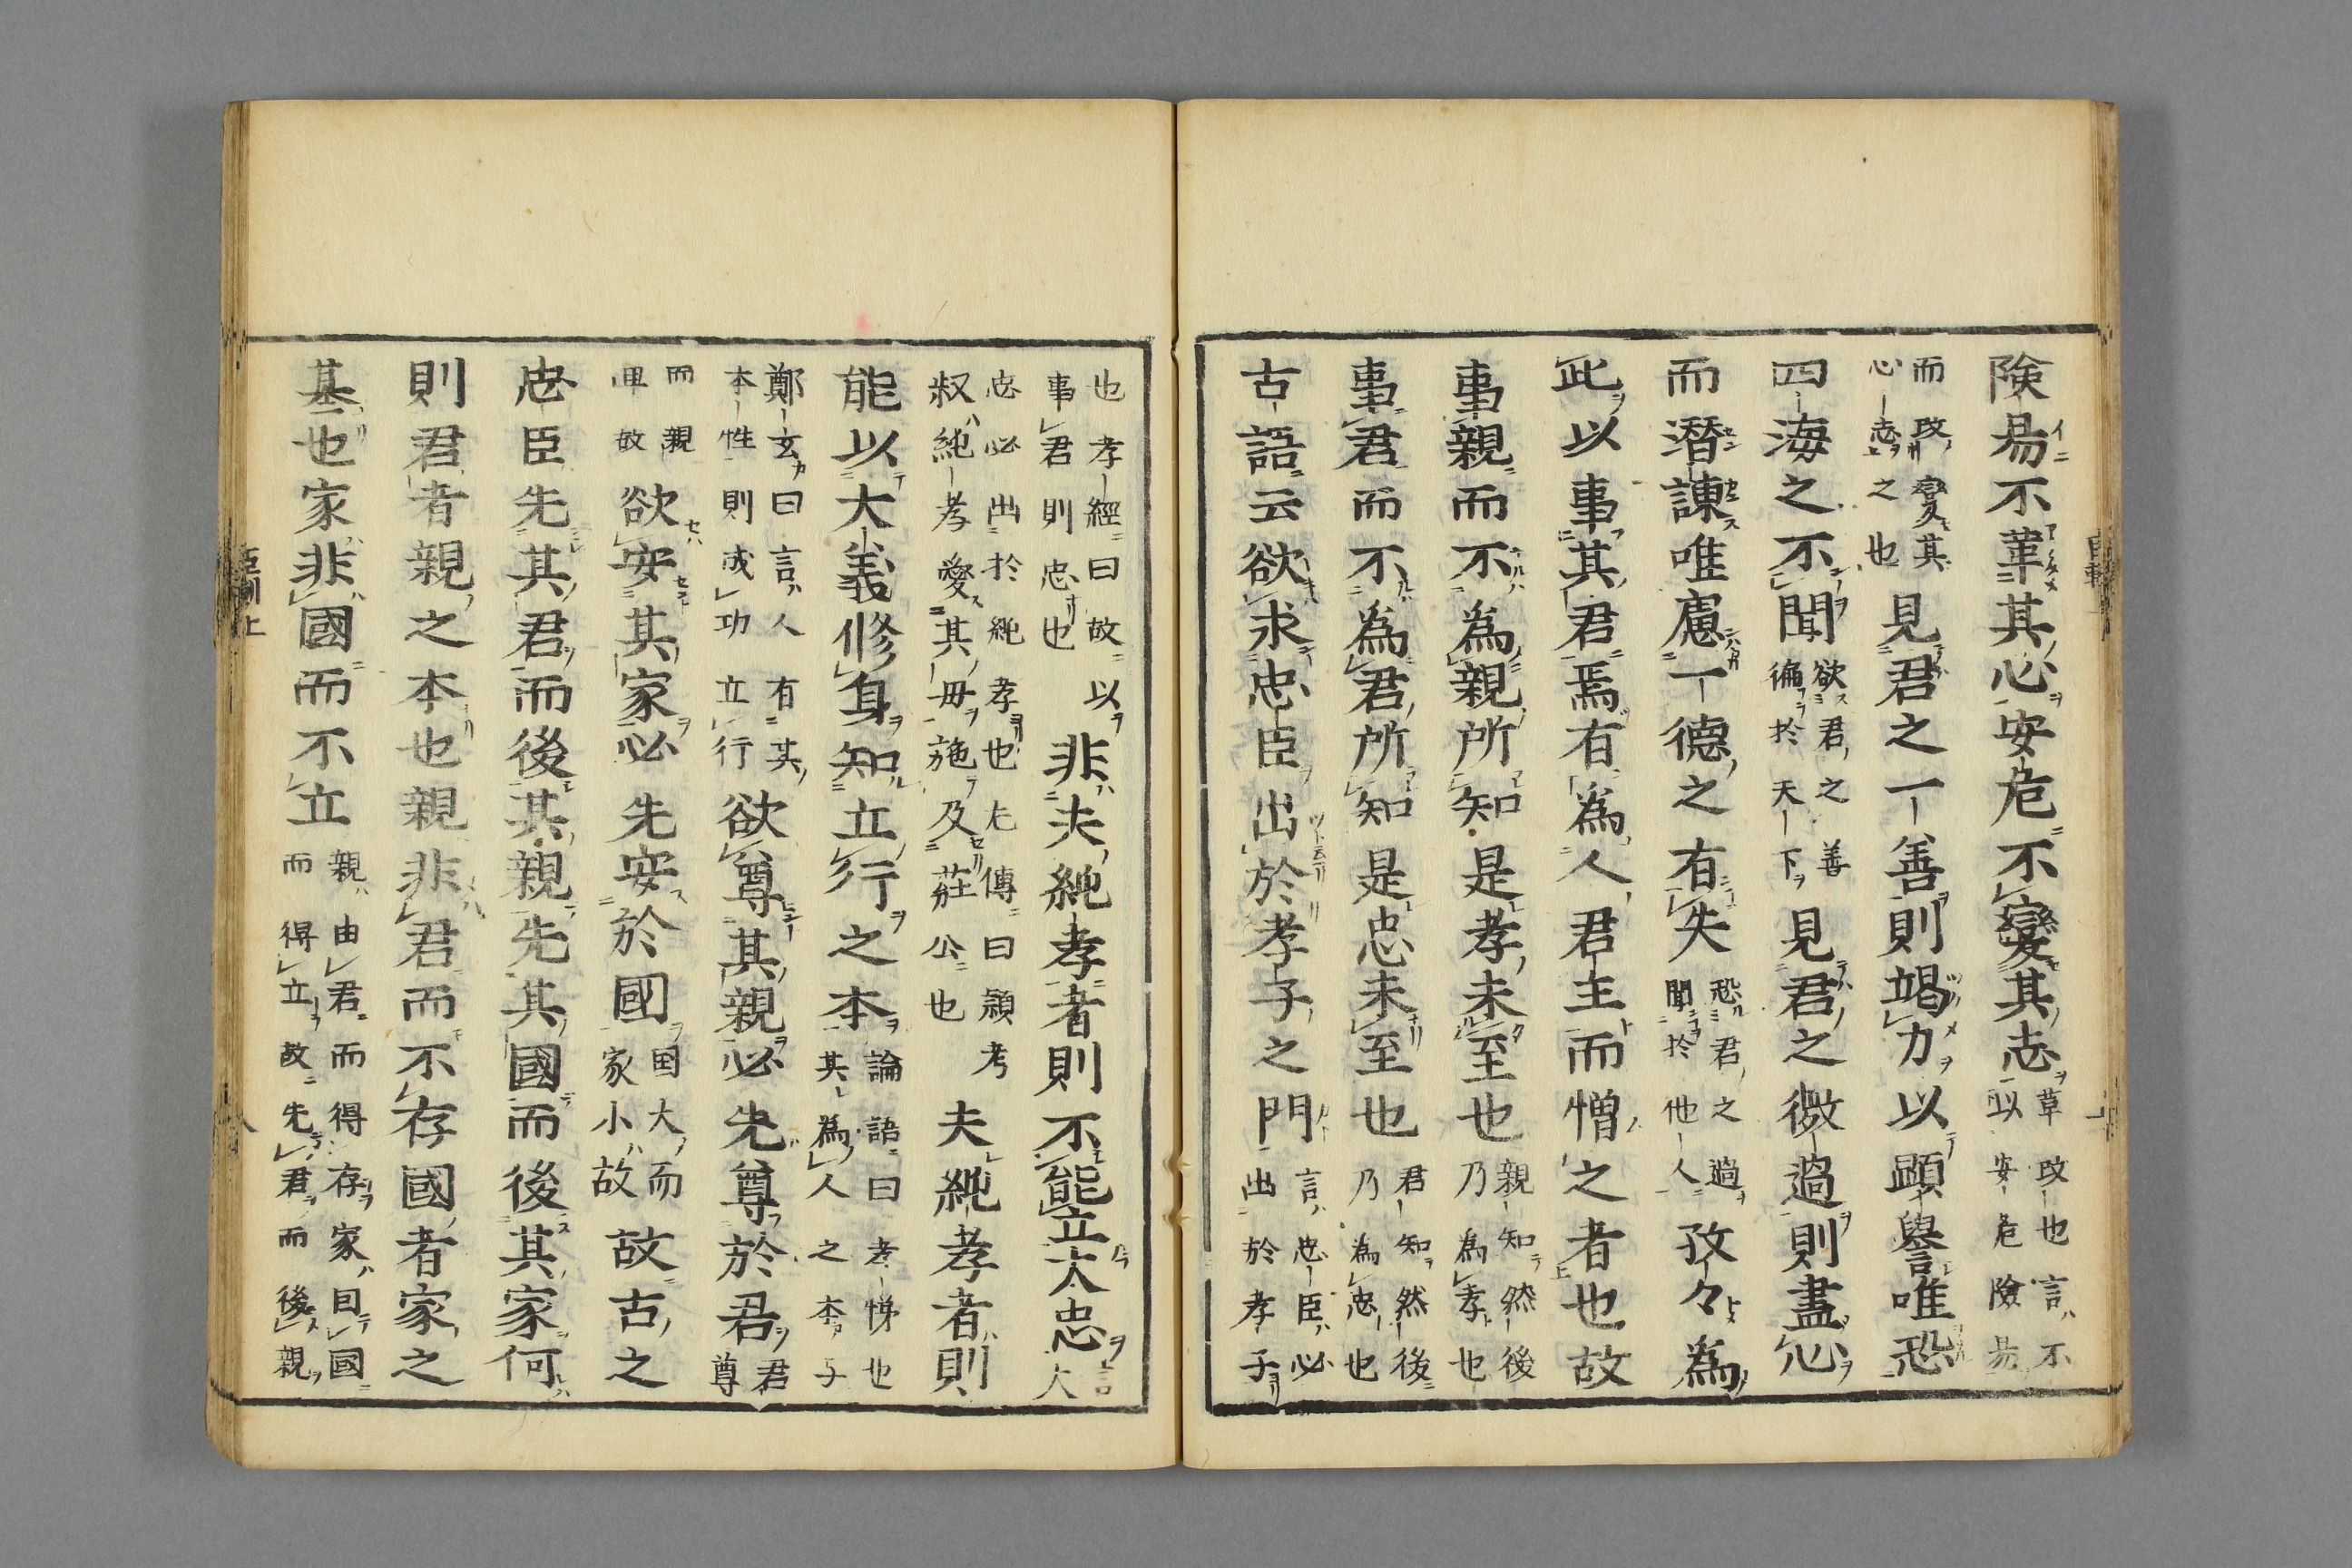 険易不革其心安危不變其志革改也言不以安危險易
而改變其心志之也見君之一善則竭力以顕譽唯恐
四海之不聞欲君之善徧於天下見君之微過則盡心
而潜諫唯慮一德之有失恐君之過聞於他人孜々為
此以事其君焉有為人君主而憎之者也故
事親而不為親所知是孝未至也親知然後乃為孝也
事君而不為君所知是忠未至也君知然後乃為忠也
古語云欲求忠臣出於孝子之門言忠臣必出於孝子
也孝經曰故以事君則忠也非夫純孝者則不能立大忠言大
忠必出於純孝也左傳曰頴考叔純孝愛其母施及莊公也夫純孝者則
能以大義修身知立行之本論語曰孝悌也其為人之本子
鄭玄曰言人有其本性則成功立行欲尊其親必先尊於君君尊
而親畢故欲安其家必先安於國国大而家小故故古之
忠臣先其君而後其親先其國而後其家何
則君者親之本也親非君而不存國者家之
基也家非國而不立親由君而得存家曰國而得立故先君而後親
臣軌上
八